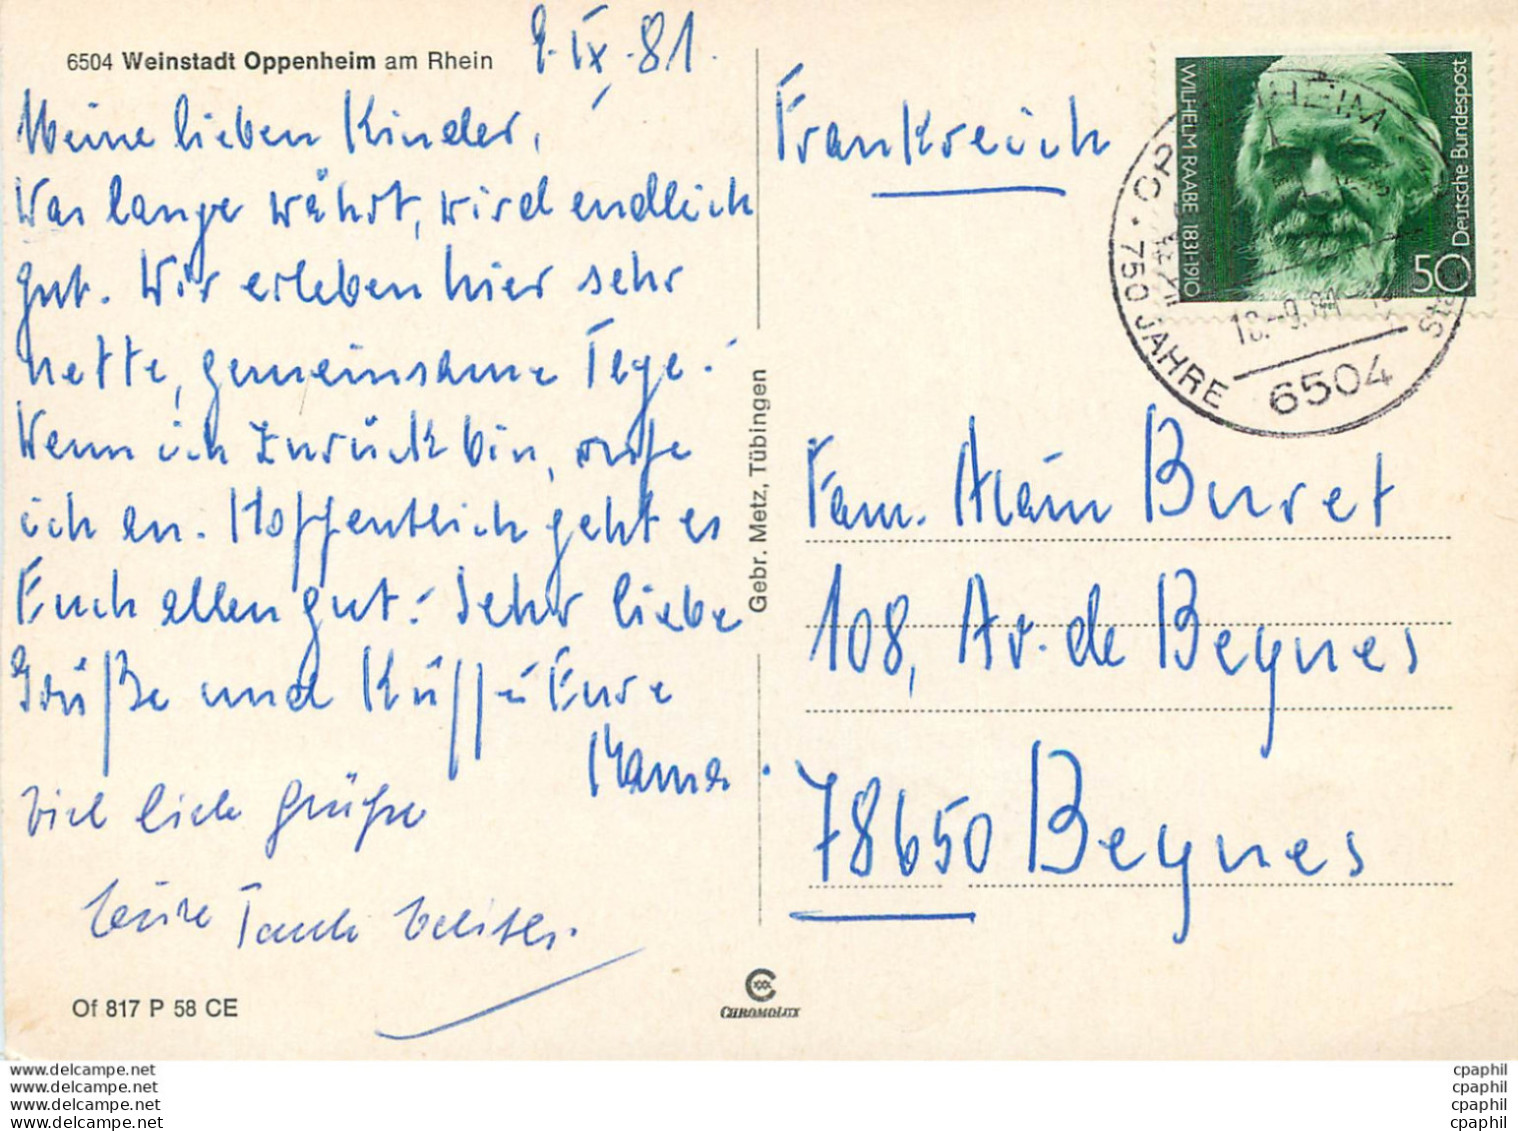 6504 Weinstadt Oppenheim am Rhein
9. IX. 81.
Meine lieben Kinder,
Was lange währt, wird endlich
gut. Wir erleben hier sehr
nette, gemeinsame Tage.
Wenn ich zurück bin, rufe
ich an. Hoffentlich geht es
Euch allen gut. Sehr liebe
Grüße und Küsse Eure
Mama.
viel liebe Grüße
Tante
Of 817 P 58 CE
Gebr. Metz, Tübingen
CHROMOLUX
Frankreich
WILHELM RAABE 1831-1910
Deutsche Bundespost
50
750 JAHRE
6504
Fam. Alain Buret
108, Av. de Beynes
78650 Beynes
www.delcampe.net
www.delcampe.net
www.delcampe.net
www.delcampe.net
cpaphil
cpaphil
cpaphil
cpaphil